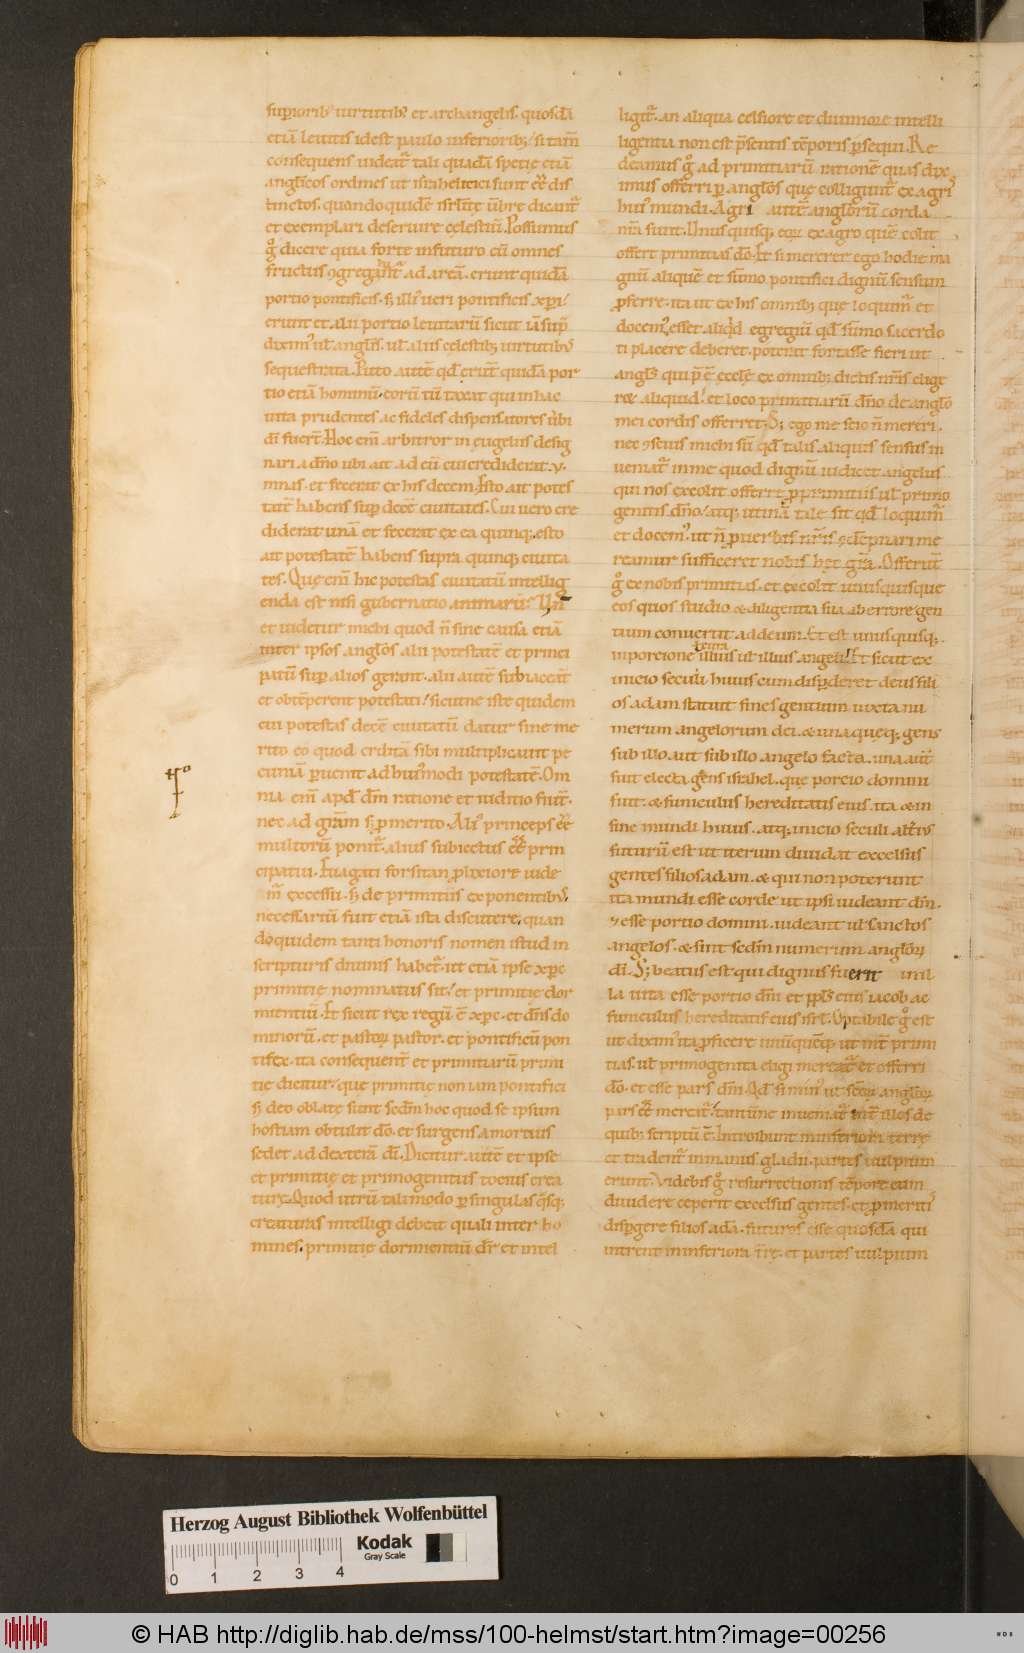 superiorib; uirtutib; et archangelis. quosdā
etiā leuitis idest paulo inferiorib;. si tam̄
consequens uideat̄ tali quadā spetie etiā
anglicos ordines ut israhelitici sunt eē̄ dis
tinctos. quandoquidē isrl'itę ūbre dicant̄
et exemplari deserure celestiū. Possumus
g° dicere quia forte infuturo cū omnes
fructus ꝯgregabunt̄ ad areā. erunt quidā
portio pontificis. s; illi' ueri pontificis xp̄i.
erunt et alii portio leuitarū sicut iā sup̄
dixim' ul' anglis. ul' aliis celestib; uirtutib;
sequestrata. Puto autē qd̄ erunt̄ quidā por
tio etiā hominū. eorū tū taxat qui in hac
uita prudentes ac fideles dispensatores ūbi
dī fuer̄. Hoc em̄ arbitror in eugeliis desig
nari a dn̄o ubi ait ad eū cui crediderat. v.
mnas. et fecerat ex his decem. Esto ait potes
tatē habens sup̄ decē ciuitates. Cui uero cre
diderat unā et fecerat ex ea quinq;. esto
ait potestatē habens supra quinq; ciuita
tes. Quę em̄ hic potestas ciuitatū intellig
enda est nisi gubernatio animarū.
et uidetur michi quod n̄ sine causa etiā
inter ipsos anglos alii potestatē et princi
patū sup̄ alios gerunt. alii autē subiaceāt
et obtēperent potestati. sicut ne iste quidem
cui potestas decē ciuitatū datur sine me
rito eo quod creditā sibi multiplicauit pe
cuniā p̄uenit ad hui'modi potestatē. Om
nia em̄ apd' dm̄ ratione et iuditio fiunt̄.
nec ad grām s; p̄ merito. Ali' princeps eē̄
multorū ponit̄. alius subiectus eē̄ prin
cipatui. Euagati forsitan prolixiore uide
m̄ excessu. s; de primitiis exponentib;.
necessariū fuit etiā ista discutere. quan
doquidem tanti honoris nomen istud in
scripturis diuinis habet̄. ut etiā ipse xp̄c
primitię nominatus sit. et primitię dor
mientiū. Et sicut rex regū ē xp̄c. et dn̄s do
minorū. et pastorꝝ pastor. et pontificū pon
tifex. ita consequent̄ et primitiarū primi
tię dicitur. que primitię non iam pontifici
s; deo oblatę sunt sedm̄ hoc quod se ipsum
hostiam obtulit dō. et surgens a mortuis
sedet ad dexterā dī. Dicitur autē et ipse
et primitię et primogenitus totius crea
turę. Quod utrū tali modo p̄ singulas q̄sq;
creaturas intelligi debeat quali inter ho
mines. primitię dormientiū dr̄ et intel
ligit̄. an aliqua celsiore et diuiniore intelli
ligentia non est p̄sentis tēporis p̄sequi. Re
deamus g° ad primitiarū rationē quas dix
imus offerri p̄ anglos quę colliguntꝰ ex agri
hui' mundi. Agri autē anglorū corda
nr̄a sunt. Unus quisq; eorꝝ ex agro quē colit
offert primitias dō. Et si mererer ego hodie ma
gnū aliquē et sūmo pontifici dignū sensum
p̄ferre. ita ut ex his omnib; que loquim̄ et
docem'. esset aliq'd egregiū qd̄ sūmo sacerdo
ti placere deberet. poterat fortasse fieri ut
angls qui p̄ ē eccłę ex omnib; dictis nr̄is elige
ret aliquid. et loco primitiarū dn̄o de anglo
mei cordis offerret. S; ego me scio n̄ mereri.
nec ꝯscius michi sū qd̄ talis aliquis sensus in
ueniat̄ in me quod dignū iudicet angelus
qui nos excolit offerre p̄ primitiis ul' primo
genitis dn̄o. atq; utinā tale sit qd̄ loquim̄
et docem'. ut n̄ p̄ uerbis nr̄is ꝯdēpnari me
reamur sufficeret nobis hęc gr̄a. Offerunt̄
g° ex nobis primitias. et excolit unusquisque
eos quos studio & diligentia sua ab errore gen
tium conuertit ad deum. Et est unus quisq;
in porcione illius ul' illius angeli. Et sicut ex
inicio seculi huius cum disp̄deret deus fili
os adam statuit fines gentium iuxta nu
merum angelorum dei. & una queq; gens
sub illo aut sub illo angelo facta. una aut̄
fuit electa gens israhel. que porcio domini
fuit. & funiculus hereditatis eius. ita & in
fine mundi huius. atq; inicio seculi alteri'
futurū est ut iterum diuidat excelsus
gentes filios adam. & qui non poterunt
ita mundi esse corde ut ipsi uideant dn̄.
& esse portio domini. uideant ul' sanctos
angelos. & sint sedm̄ numerum anglorꝝ
dī. S; beatus est qui dignus fuerit in il
la uita esse portio dn̄i et ppls eius iacob ac
funiculus hereditatis eius isrl'. Optabile g° est
ut dixim' ita p̄ficere unū quēq; ut int̄ primi
tias. ul' primogenita eligi mereat̄ et offerri
dō. et esse pars dn̄i. Qd̄ si min' ul' sc̄orꝝ anglorꝝ
pars eē̄ mereat̄. tantū ne inueniat̄ int̄ illos de
quib; scriptū ē. Introibunt in inferiora terre
et tradent̄ in manus gladii. partes uulpium
erunt. Videbis g° resurrectionis tēpore cum
diuidere ceperit excelsus gentes. et p̄ meriti'
disp̄gere filios adā. futuros esse quosdā qui
intrent in inferiora trę. et partes uulpium
Herzog August Bibliothek Wolfenbüttel
Kodak
Gray Scale
0 1 2 3 4
© HAB http://diglib.hab.de/mss/100-helmst/start.htm?image=00256